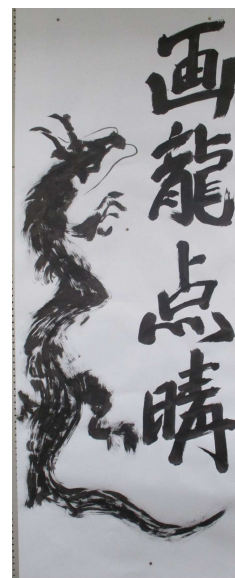 画龍点睛